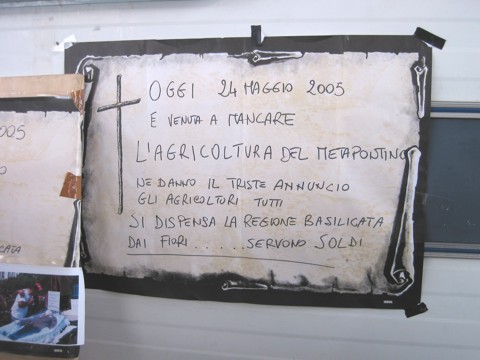 OGGI 24 MAGGIO 2005
E VENUTA A MANCARE
L'AGRICOLTURA DEL METAPONTINO
NE DANNO IL TRISTE ANNUNCIO
GLI AGRICOLTORI TUTTI
SI DISPENSA LA REGIONE BASILICATA
DAI FIORI ..... SERVONO SOLDI
2005
O
CATA